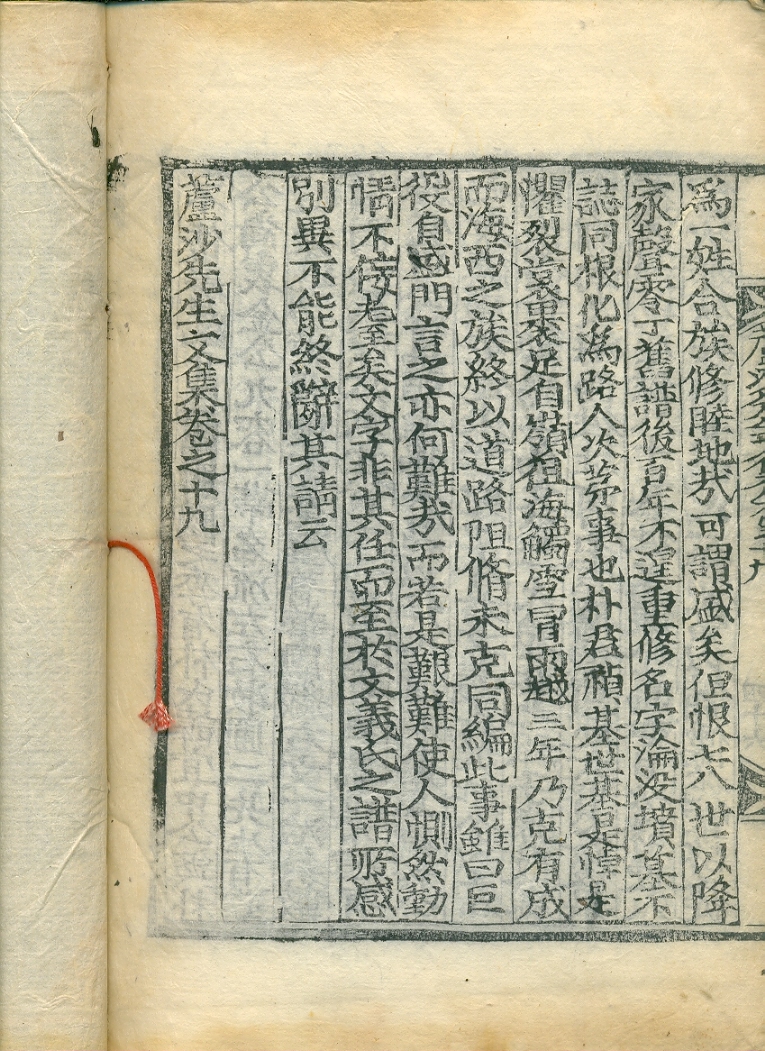 爲一姓合族修睦地哉可謂盛矣但恨七八世以降
家聲零丁舊譜後百年不遑重修名字淪沒墳墓不
誌同根化爲路人次第事也朴君禎基世基是悼是
懼裂裳裹足自嶺徂海觸雪冒雨越三年乃克有成
而海西之族終以道路阻脩未克同編此事雖曰巨
役自盛門言之亦何難哉而若是艱難使人惻然動
情不佞老至矣文字非其任而至於文義氏之譜所感
別異不能終辭其請云
蘆沙先生文集卷之十九